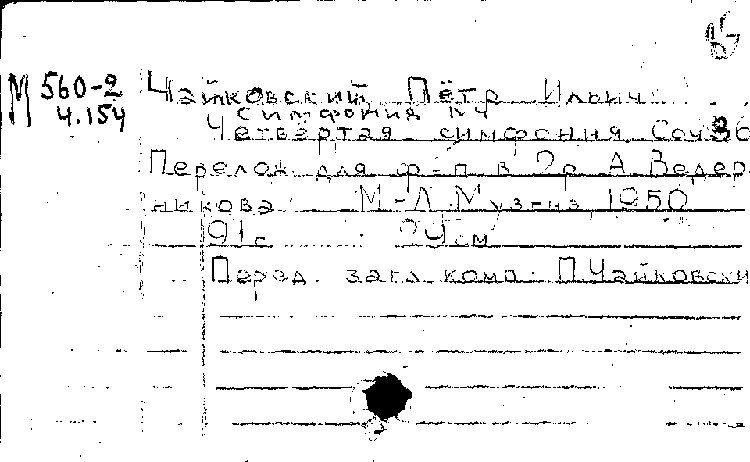 М 560-2
Ч.154
Чайковский Пётр Ильич
Симфония №4
Четвёртая симфония Соч 36
Перелож для ф-п в 2р А Ведер
никова М-Л Музгиз 1950
91с 24см
Перед загл комп П.Чайковски